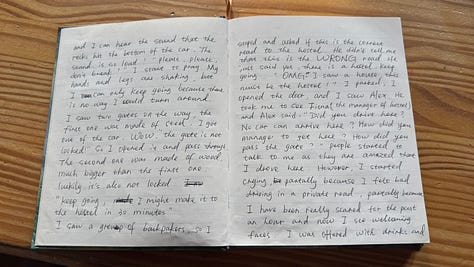 and I can hear the sound that the
rocks hit the bottom of the car. The
sound is so loud! "please, please,
don't break". I start to pray. My
hands and legs are shaking but
I can only keep going because there
is no way I would turn around.
I saw two gates on the way. the
first one was made of steel. I got
out of the car. Wow. "the gate is not
locked!" So I opened it and pass through
The second one was made of wood
much bigger than the first one
luckily it's also not locked.
"keep going, I might make it to
the hostel in 30 minutes."
I saw a group of backpackers. so I
stopped and asked if this is the correct
road to the hostel. He didn't tell
me that this is the WRONG road. He
just said yes, there is a hostel. keep
going. "OMG!" I saw a house, this
must be the hostel!" I parked, I
opened the door and I saw Alex. He
took me to see Fiona (the manager of hostel)
and Alex said: "Did you drive here?
No car can arrive here? How did you
manage to get here? How did you
pass the gate?" people started to
talk to me as they are amazed that
I drove here. However, I started
crying partially because I felt bad
driving in a private road, partially because
I have been really scared for the past
an hour and now I see welcoming
faces. I was offered with drinks and